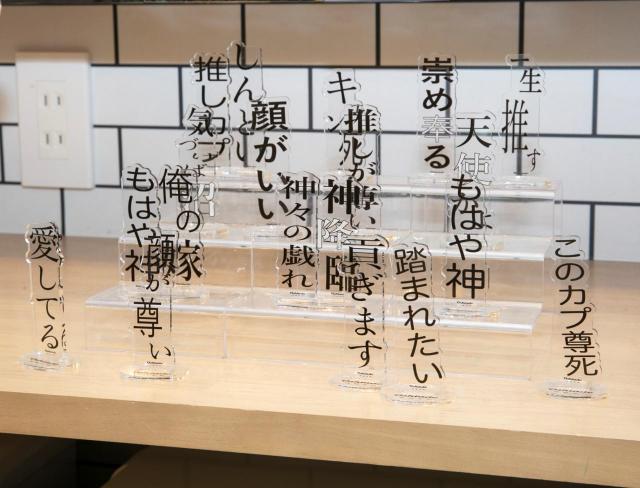 一生推す
崇め奉る
天使
もはや神
このカプ尊死
踏まれたい
貢ぎます
推しが尊い
神降臨
神々の戯れ
顔がいい
しんどい
俺の嫁
もはや神
顔が尊い
愛してる